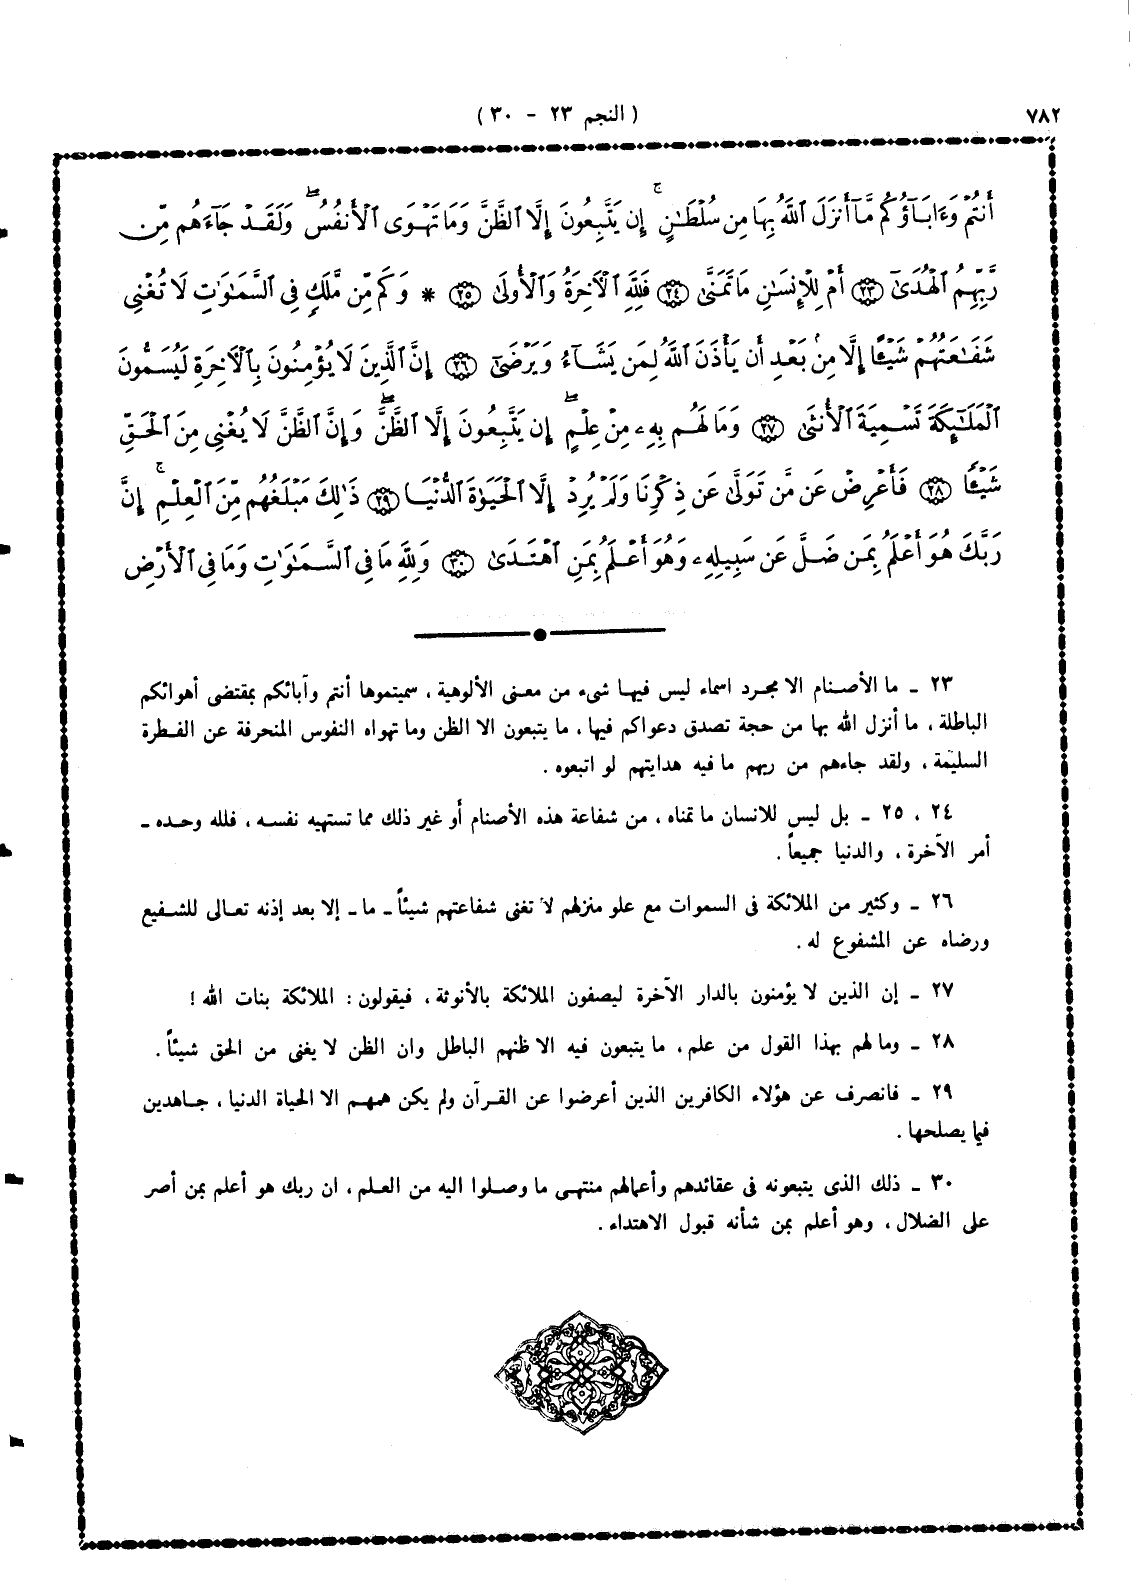 ٧٨٢
( النجم ٢٣ – ٣٠ )
أَنتُمْ وَءَابَآؤُكُم مَّآ أَنزَلَ ٱللَّهُ بِهَا مِن سُلْطَٰنٍ ۚ إِن يَتَّبِعُونَ إِلَّا ٱلظَّنَّ وَمَا تَهْوَى ٱلْأَنفُسُ ۖ وَلَقَدْ جَآءَهُم مِّن
رَّبِّهِمُ ٱلْهُدَىٰٓ ﴿٢٣﴾ أَمْ لِلْإِنسَٰنِ مَا تَمَنَّىٰ ﴿٢٤﴾ فَلِلَّهِ ٱلْأَخِرَةُ وَٱلْأُولَىٰ ﴿٢٥﴾ * وَكَم مِّن مَّلَكٍ فِى ٱلسَّمَٰوَٰتِ لَا تُغْنِى
شَفَٰعَتُهُمْ شَيْـًٔا إِلَّا مِنۢ بَعْدِ أَن يَأْذَنَ ٱللَّهُ لِمَن يَشَآءُ وَيَرْضَىٰٓ ﴿٢٦﴾ إِنَّ ٱلَّذِينَ لَا يُؤْمِنُونَ بِٱلْأَخِرَةِ لَيُسَمُّونَ
ٱلْمَلَٰٓئِكَةَ تَسْمِيَةَ ٱلْأُنثَىٰ ﴿٢٧﴾ وَمَا لَهُم بِهِۦ مِنْ عِلْمٍ ۖ إِن يَتَّبِعُونَ إِلَّا ٱلظَّنَّ ۖ وَإِنَّ ٱلظَّنَّ لَا يُغْنِى مِنَ ٱلْحَقِّ
شَيْـًٔا ﴿٢٨﴾ فَأَعْرِضْ عَن مَّن تَوَلَّىٰ عَن ذِكْرِنَا وَلَمْ يُرِدْ إِلَّا ٱلْحَيَوٰةَ ٱلدُّنْيَا ﴿٢٩﴾ ذَٰلِكَ مَبْلَغُهُم مِّنَ ٱلْعِلْمِ ۚ إِنَّ
رَبَّكَ هُوَ أَعْلَمُ بِمَن ضَلَّ عَن سَبِيلِهِۦ وَهُوَ أَعْلَمُ بِمَنِ ٱهْتَدَىٰ ﴿٣٠﴾ وَلِلَّهِ مَا فِى ٱلسَّمَٰوَٰتِ وَمَا فِى ٱلْأَرْضِ
٢٣ ـ ما الأصنام الا مجرد اسماء ليس فيها شىء من معنى الألوهية ، سميتموها أنتم وآبائكم بمقتضى أهوائكم
الباطلة ، ما أنزل الله بها من حجة تصدق دعواكم فيها ، ما يتبعون الا الظن وما تهواه النفوس المنحرفة عن الفطرة
السليمة ، ولقد جاءهم من ربهم ما فيه هدايتهم لو اتبعوه .
٢٤ ، ٢٥ ـ بل ليس للانسان ما تمناه ، من شفاعة هذه الأصنام أو غير ذلك مما تستهيه نفسه ، فلله وحده ـ
أمر الآخرة ، والدنيا جميعاً .
٢٦ ـ وكثير من الملائكة فى السموات مع علو منزلهم لا تغنى شفاعتهم شيئاً ـ ما ـ إلا بعد إذنه تعالى للشفيع
ورضاه عن المشفوع له .
٢٧ ـ إن الذين لا يؤمنون بالدار الآخرة ليصفون الملائكة بالأنوثة ، فيقولون : الملائكة بنات الله !
٢٨ ـ وما لهم بهذا القول من علم ، ما يتبعون فيه الا ظنهم الباطل وان الظن لا يغنى من الحق شيئاً .
٢٩ ـ فانصرف عن هؤلاء الكافرين الذين أعرضوا عن القرآن ولم يكن همهم الا الحياة الدنيا ، جاهدين
فيما يصلحها .
٣٠ ـ ذلك الذى يتبعونه فى عقائدهم وأعمالهم منتهى ما وصلوا اليه من العلم ، ان ربك هو أعلم بمن أصر
على الضلال ، وهو أعلم بمن شأنه قبول الاهتداء .